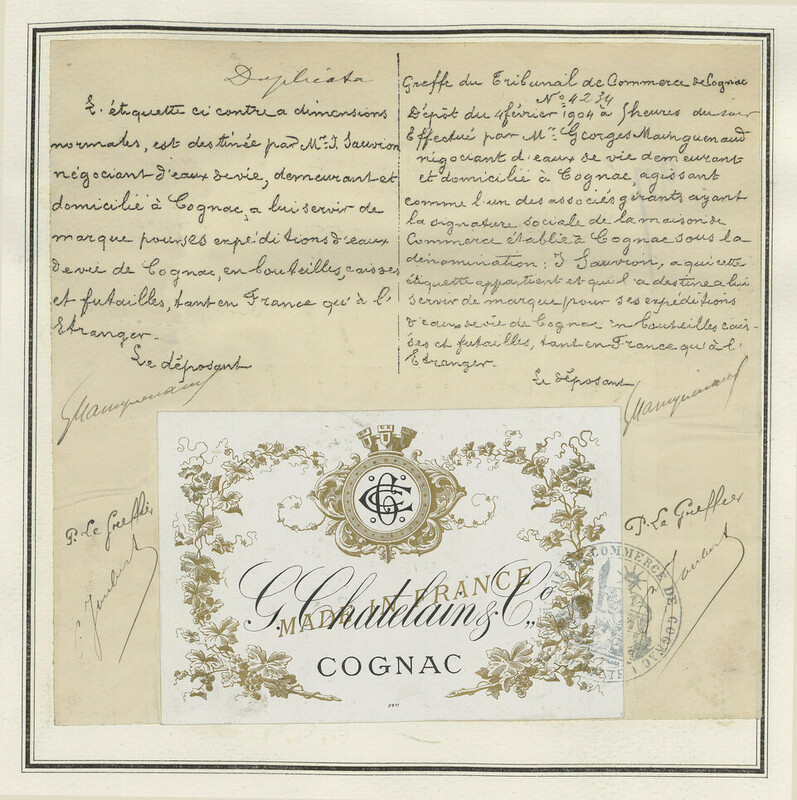 Duplicata
L'étiquette ci contre a dimensions
normales, est destinée par Mr. J. Sauvion
négociant d'eaux de vie, demeurant et
domicilié à Cognac, a lui servir de
marque pour ses expéditions d'eaux
de vie de Cognac, en bouteilles, caisses
et futailles, tant en France qu'à l'
Etranger.
Le déposant
P. Le Greffier
Greffe du Tribunal de Commerce de Cognac
No. 4234
Dépôt du 4 février 1904 à 5 heures du soir
Effectué par Mr. Georges Mainguenaud
négociant d'eaux de vie demeurant
et domicilié à Cognac, agissant
comme l'un des associés gérants ayant
la signature sociale de la maison de
Commerce établie à Cognac sous la
dénomination: J Sauvion, a qui cette
étiquette appartient et qu'il a destinée a lui
servir de marque pour ses expéditions
d'eaux de vie de Cognac in bouteilles cais-
ses et futailles, tant en France qu'à l'
Etranger.
Le déposant
P. Le Greffier
GC
G. Chatelain & Co.,
MADE IN FRANCE
COGNAC
COMMERCE DE COGNAC